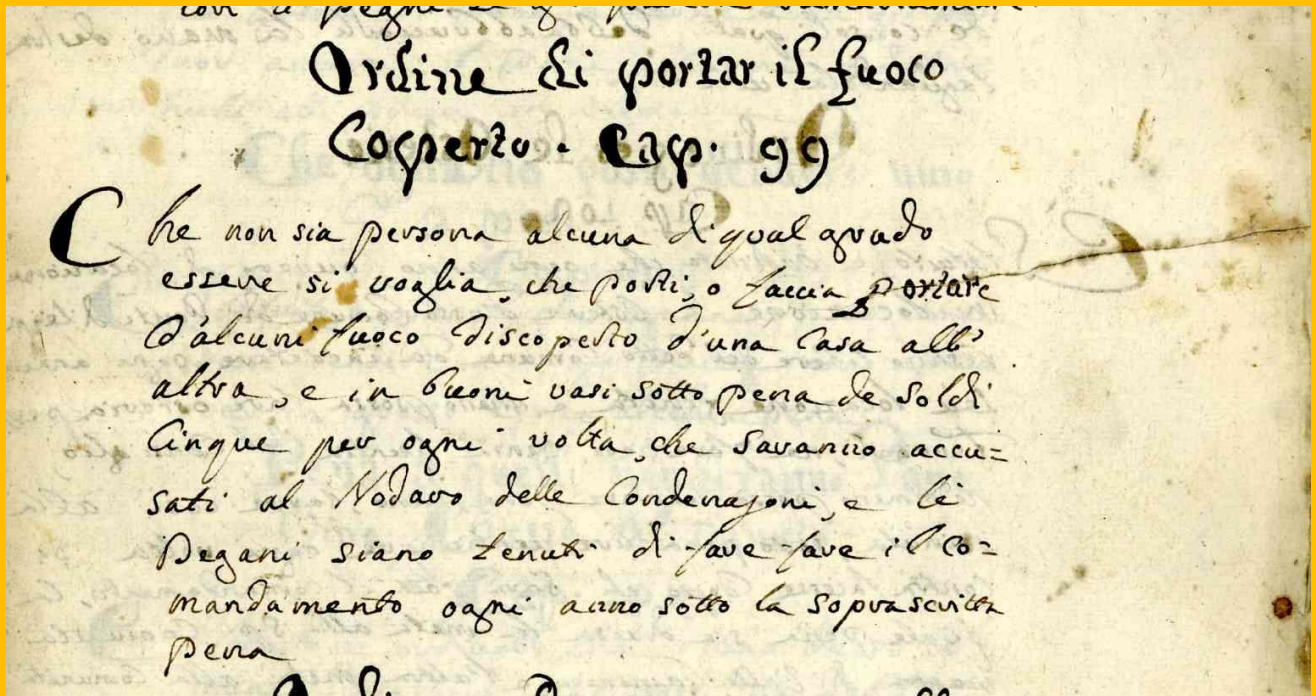 Ordine di portar il fuoco
Coperto. Cap. 99
Che non sia persona alcuna di qual grado
essere si voglia, che porti, o faccia portare
d'alcuni fuoco discoperto d'una Casa all'
altra, e in buoni vasi sotto pena de Soldi
Cinque per ogni volta, che saranno accu=
sati al Nodaro delle Condenazoni, e li
Degani siano tenuti di fare fare il Co=
mandamento ogni anno sotto la soprascritta
pena